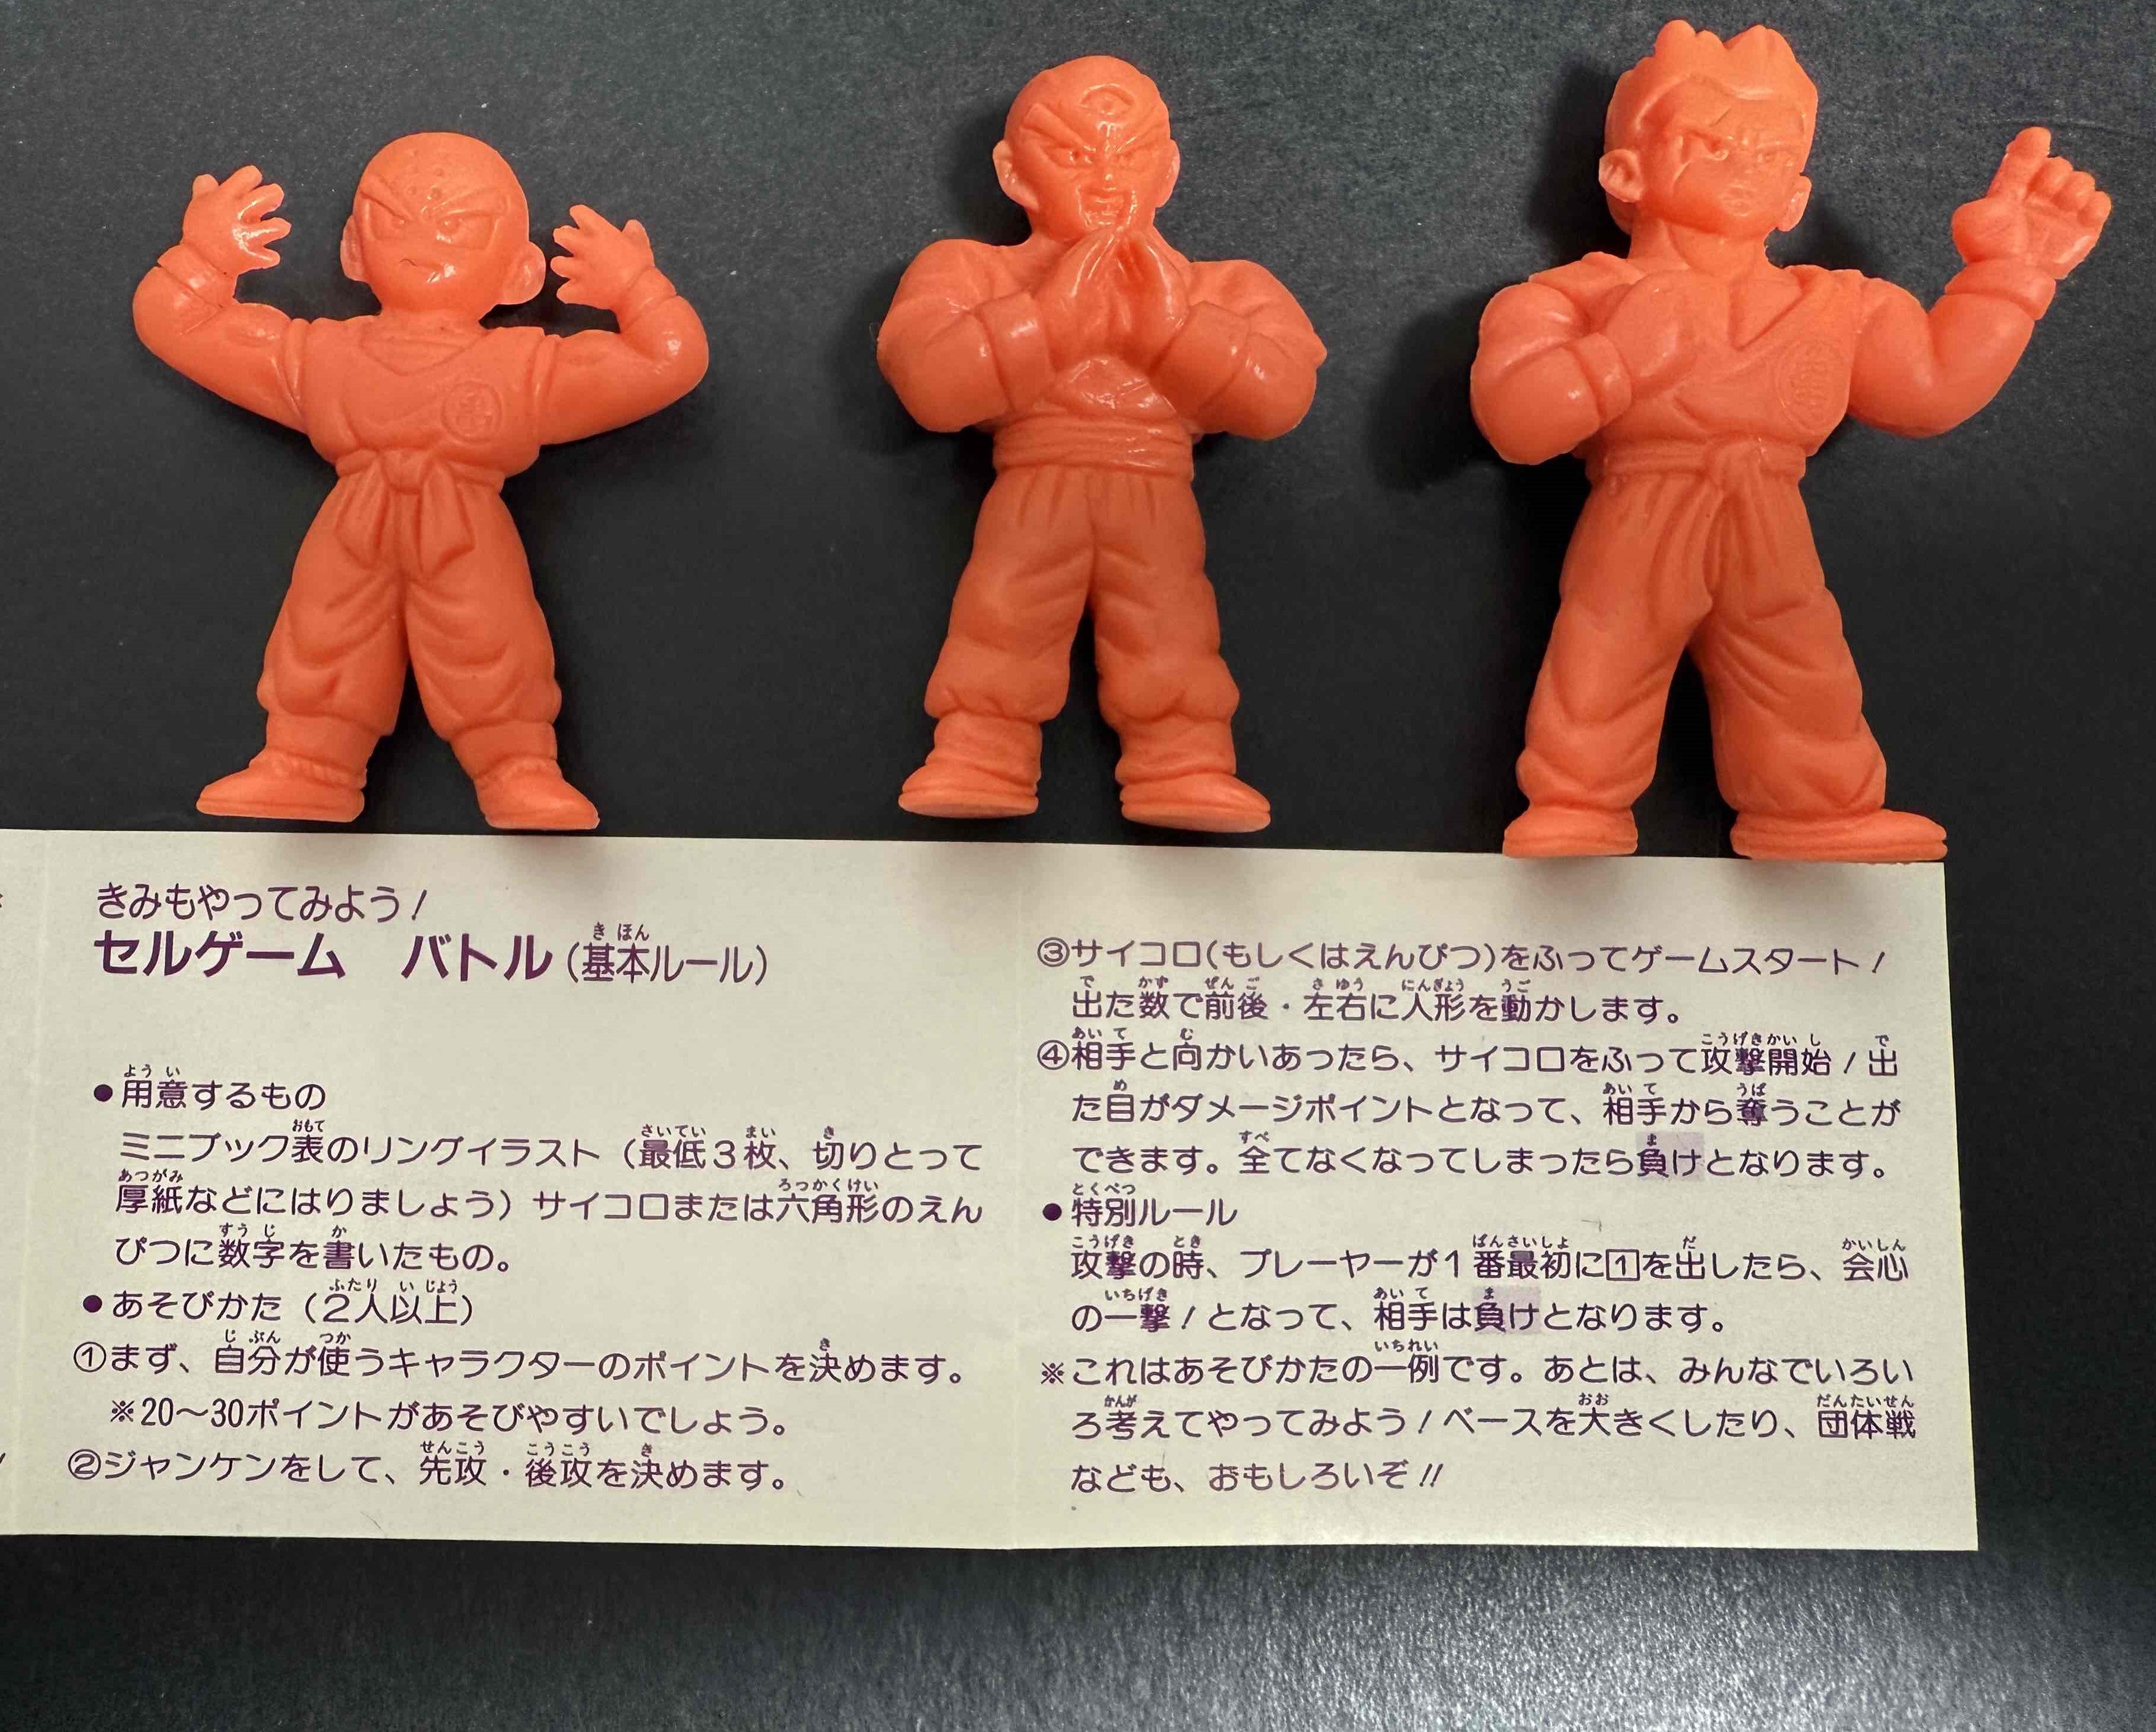 きみもやってみよう!
セルゲーム バトル(基本ルール)
●用意するもの
ミニブック表のリングイラスト(最低3枚、切りとって
厚紙などにはりましょう)サイコロまたは六角形のえん
ぴつに数字を書いたもの。
●あそびかた(2人以上)
①まず、自分が使うキャラクターのポイントを決めます。
※20〜30ポイントがあそびやすいでしょう。
②ジャンケンをして、先攻・後攻を決めます。
③サイコロ(もしくはえんぴつ)をふってゲームスタート!
出た数で前後・左右に人形を動かします。
④相手と向かいあったら、サイコロをふって攻撃開始!出
た目がダメージポイントとなって、相手から奪うことが
できます。全てなくなってしまったら負けとなります。
●特別ルール
攻撃の時、プレーヤーが1番最初に1を出したら、会心
の一撃!となって、相手は負けとなります。
※これはあそびかたの一例です。あとは、みんなでいろい
ろ考えてやってみよう!ベースを大きくしたり、団体戦
なども、おもしろいぞ!!